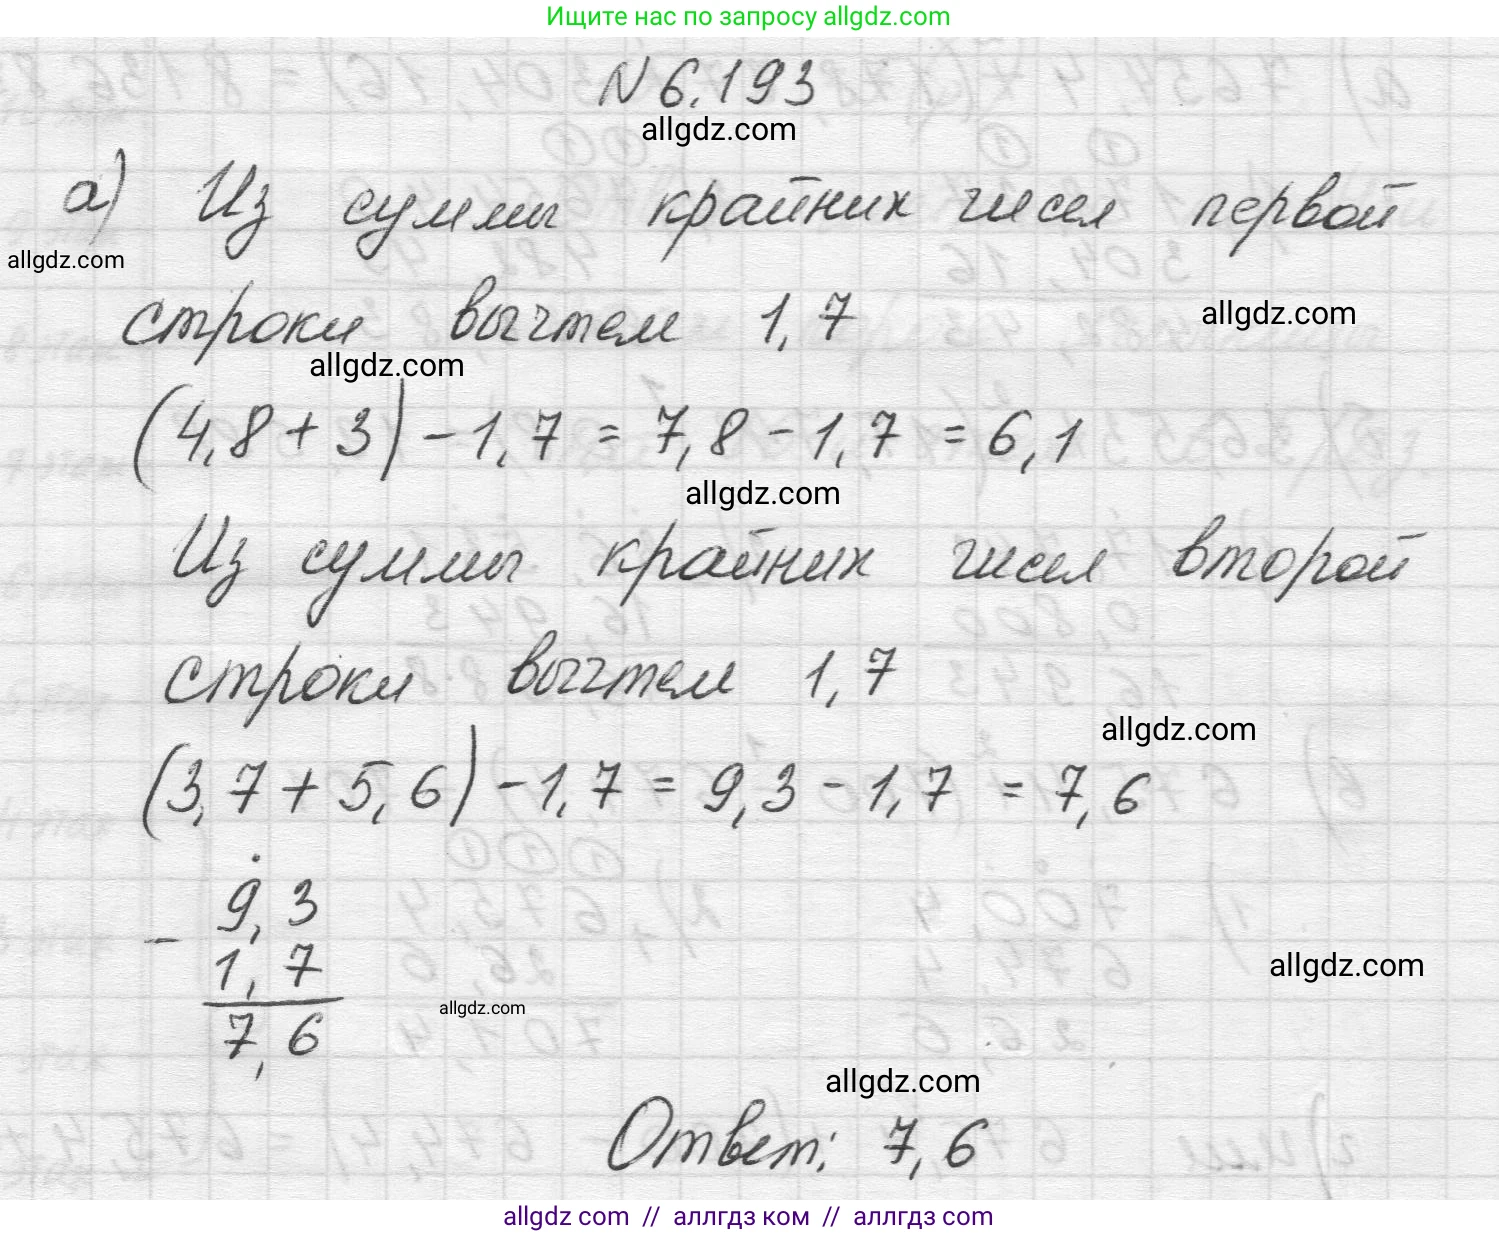 Ищите нас по запросу allgdz.com
N 6.193
allgdz.com
а) Из суммы крайних чисел первой
allgdz.com
строки вычтем 1,7
allgdz.com
allgdz.com
(4,8 + 3) - 1,7 = 7,8 - 1,7 = 6,1
allgdz.com
Из суммы крайних чисел второй
строки вычтем 1,7
allgdz.com
(3,7 + 5,6) - 1,7 = 9,3 - 1,7 = 7,6
9,3
-
1,7
allgdz.com
allgdz.com
7,6
allgdz.com
Ответ: 7,6
allgdz.com // аллгдз ком // аллгдз com